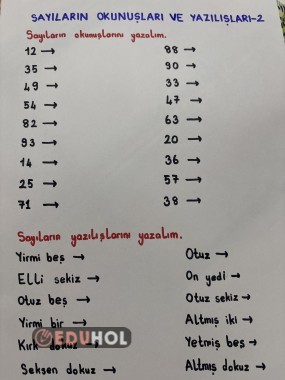 SAYILARIN OKUNUŞLARI VE YAZILIŞLARI-2
Sayıların okunuşlarını yazalım.
12 →
35 →
49 →
54 →
82 →
93 →
14 →
25 →
71 →
88 →
90 →
33 →
47 →
63 →
20 →
36 →
57 →
38 →
Sayıların yazılışlarını yazalım.
Yirmi beş →
Elli sekiz →
Otuz beş →
Yirmi bir →
Kırk dokuz →
Seksen dokuz →
Otuz →
On yedi →
Otuz sekiz →
Altmış iki →
Yetmiş beş →
Altmış dokuz →
EDUHOL